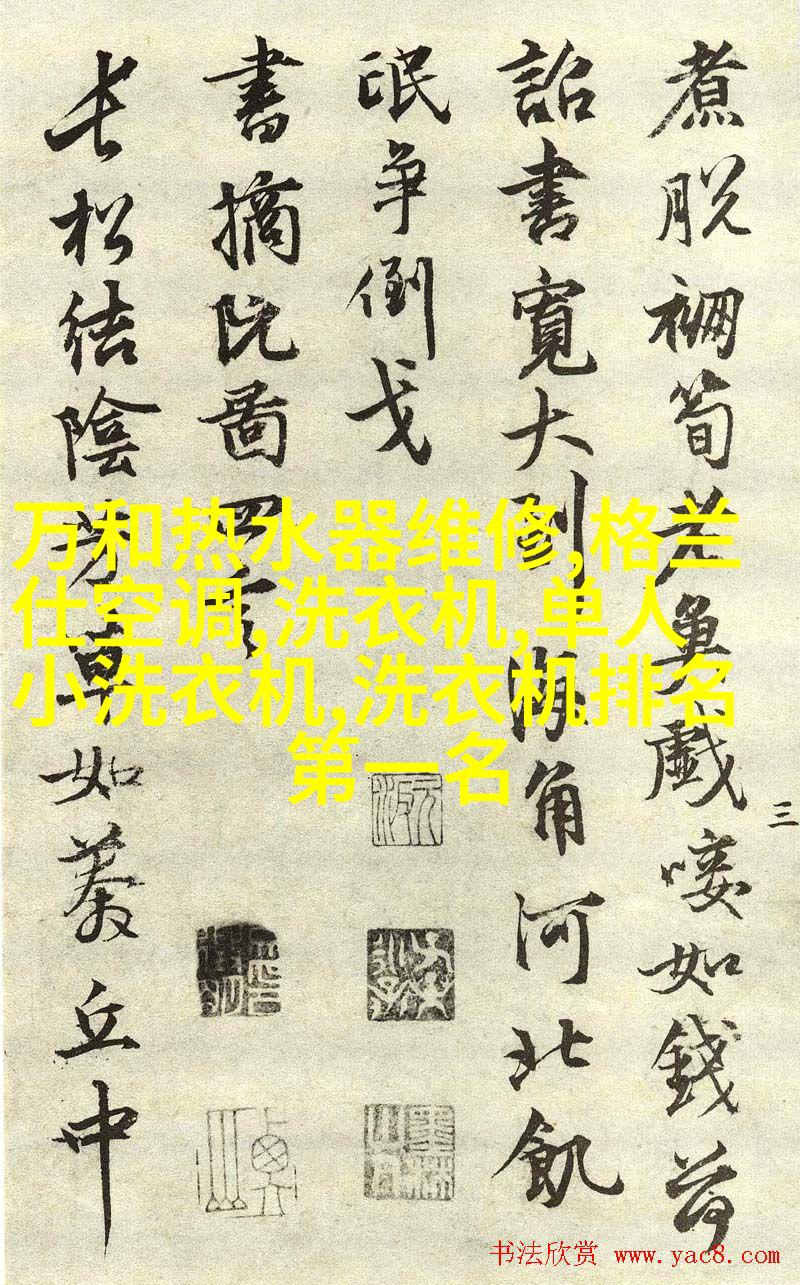 煮脱筍戲唼如錢荷
詔書寬大到海角河北飢
氓争倒戈
書摘阮圖四言
長松結陰芳草如丘中
三
万和热水器维修,格兰
仕空调,洗衣机,单人
小洗衣机,洗衣机排名
第一名
书法欣赏 www.yac8.com